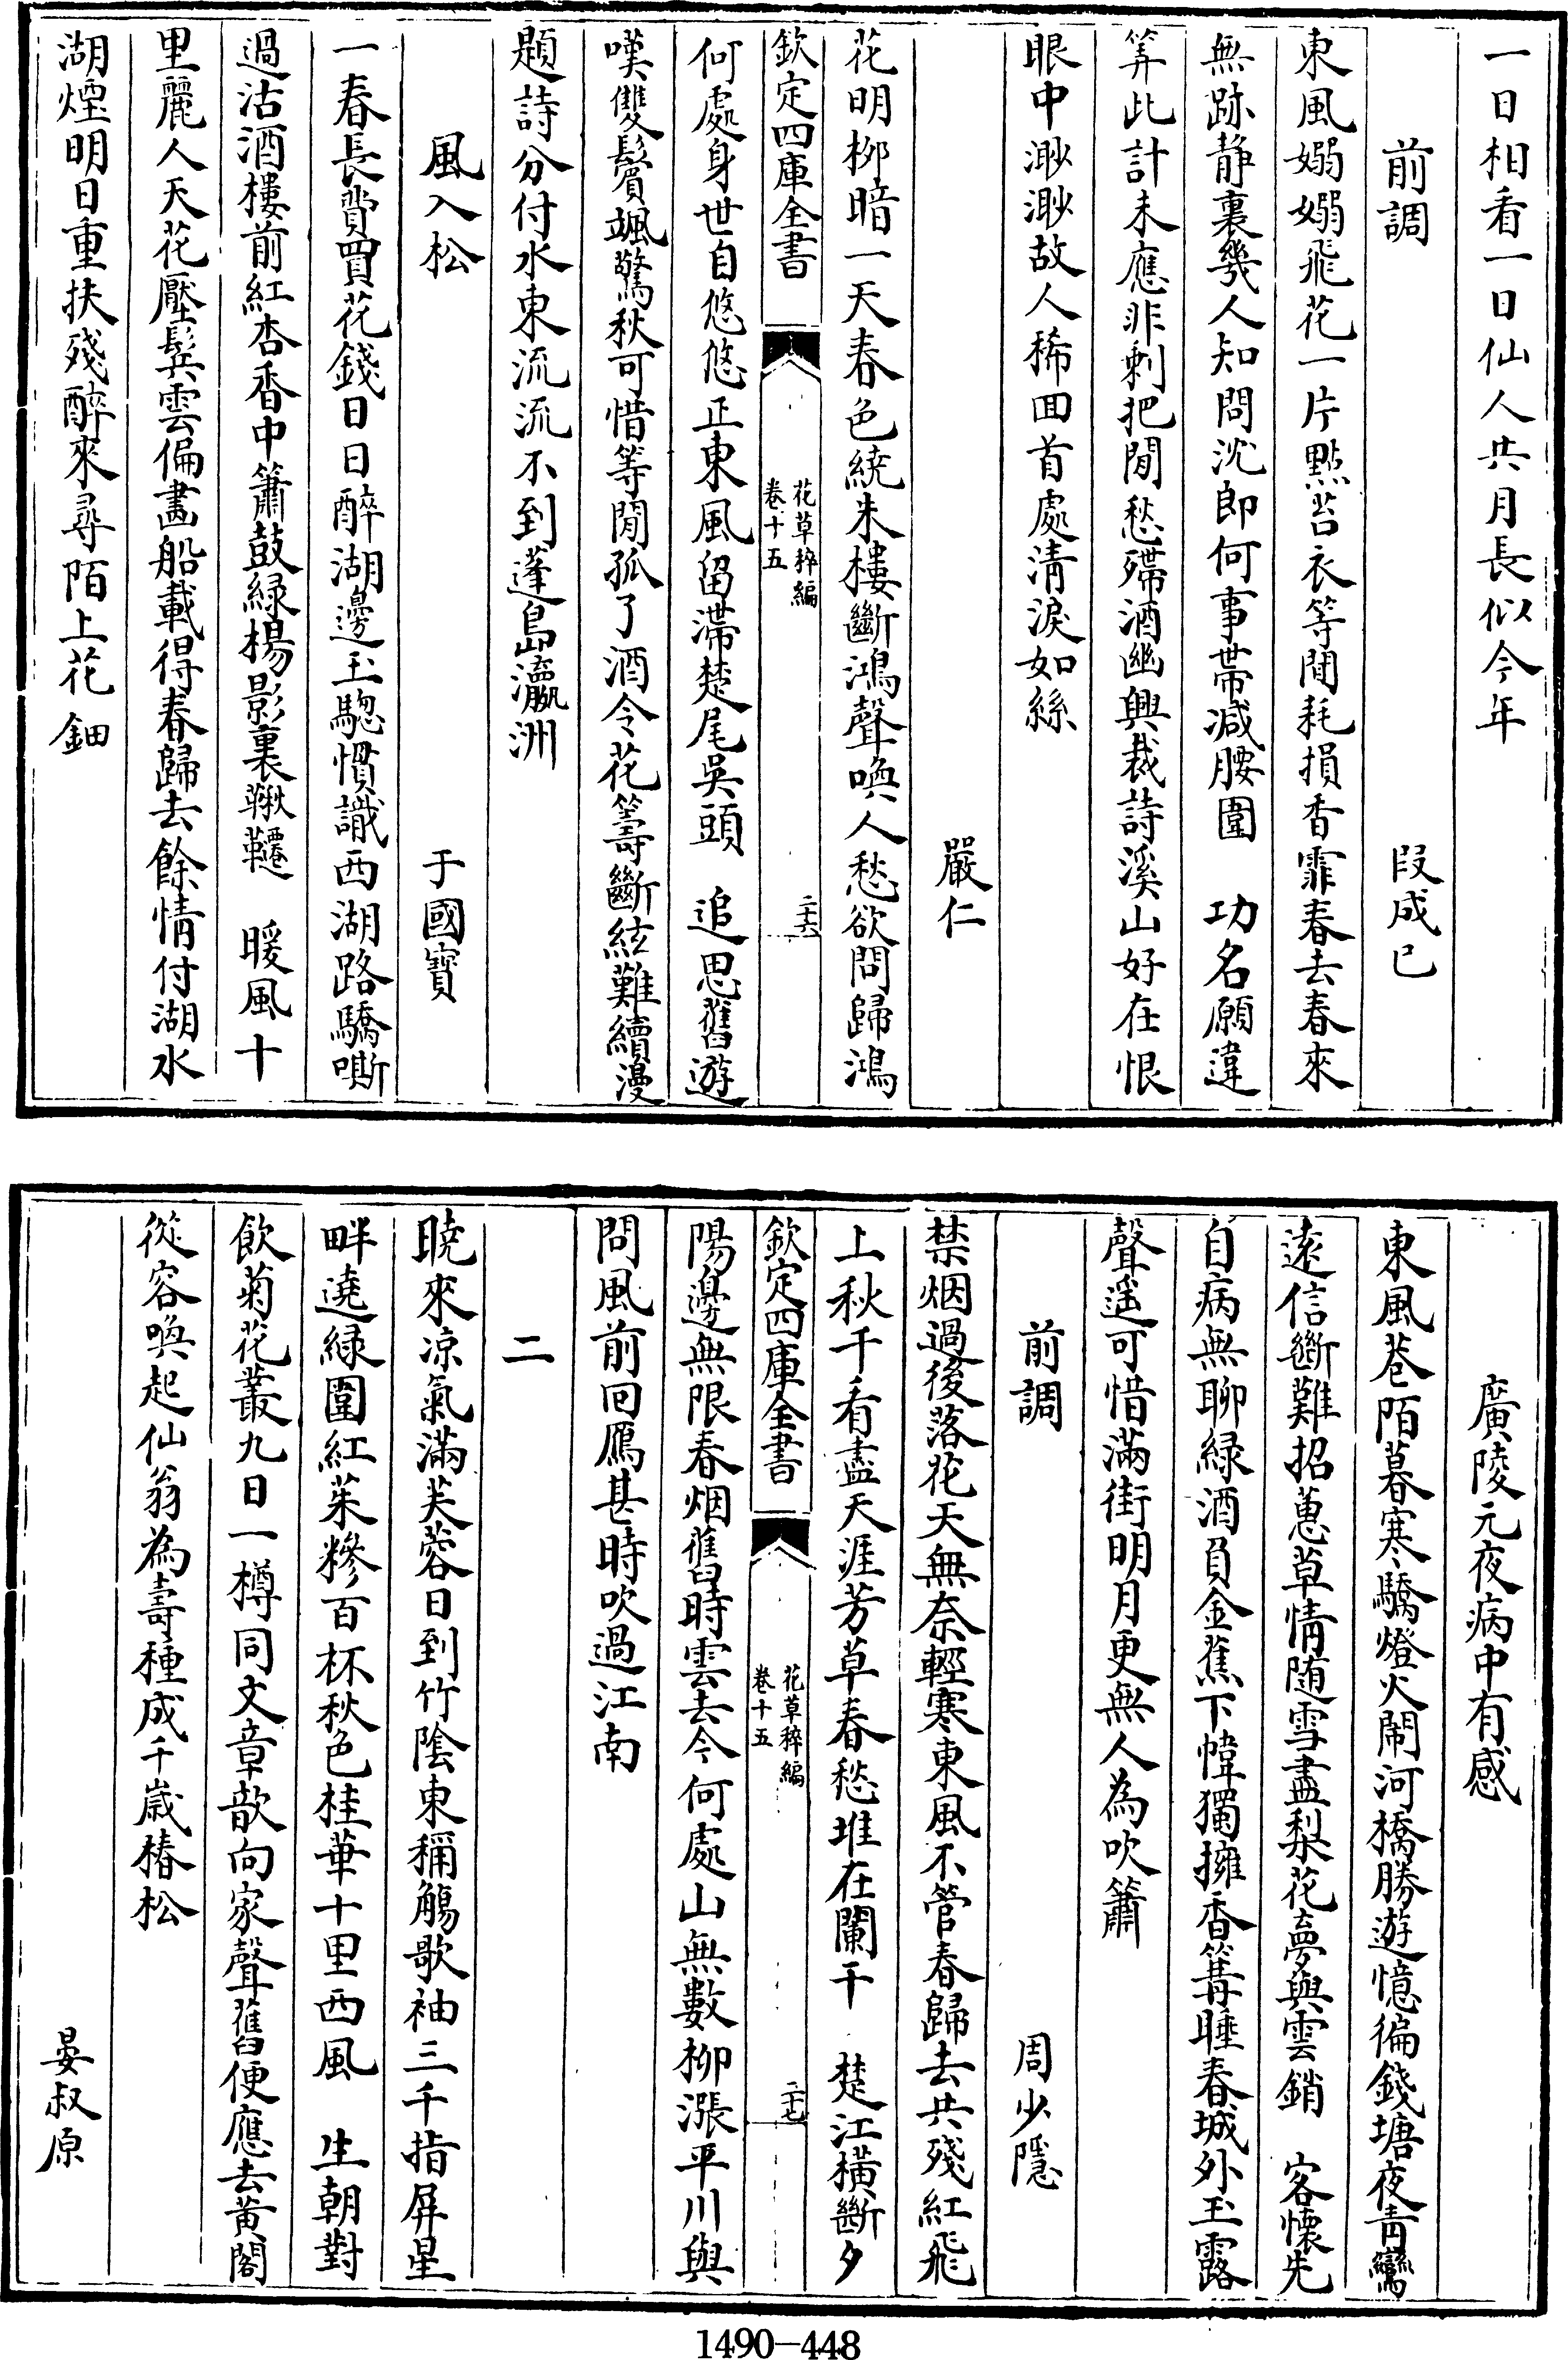 一日相看一日仙人共月長似今年
前調　段成已
東風嫋嫋飛花一片點苔衣等閒耗損香霏春去春來
無跡静裏幾人知問沈郎何事帶减腰圍　功名願違
筭此計未應非剩把閒愁殢酒幽興裁詩溪山好在恨
眼中渺渺故人稀回首處清淚如絲
嚴仁
花明栁暗一天春色繞朱樓斷鴻聲喚人愁欲問歸鴻
欽定四庫全書　花草稡編卷十五　二十六
何處身世自悠悠正東風留滯楚尾吳頭　追思舊遊
嘆雙鬢颯驚秋可惜等閒孤了酒令花籌斷絃難續漫
題詩分付水東流流不到蓬島瀛洲
風入松　于國寳
一春長費買花錢日日醉湖邊玉騘慣識西湖路驕嘶
過沽酒樓前紅杏香中簫鼓緑楊影裏鞦韆　暖風十
里麗人天花壓鬂雲偏畵船載得春歸去餘情付湖水
湖煙明日重扶殘醉來尋陌上花鈿
廣陵元夜病中有感
東風巷陌暮寒驕燈火鬧河橋勝遊憶徧錢塘夜青鸞
遠信斷難招蕙草情随雪盡梨花夢與雲銷　客懷先
自病無聊緑酒負金蕉下幃獨擁香篝睡春城外玉露
聲遥可惜滿街明月更無人為吹簫
前調　周少隱
禁烟過後落花天無奈輕寒東風不管春歸去共殘紅飛
上秋千看盡天涯芳草春愁堆在闌干　楚江橫斷夕
欽定四庫全書　花草稡編卷十五　二十七
陽邊無限春烟舊時雲去今何處山無數栁漲平川與
問風前回鴈甚時吹過江南
二
曉來凉氣滿芙蓉日到竹陰東稱觴歌袖三千指屏星
畔遶緑圍紅茱糝百杯秋色桂華十里西風　生朝對
飲菊花叢九日一樽同文章歆向家聲舊便應去黄閣
從容喚起仙翁為壽種成千歲椿松
晏叔原
1490-448